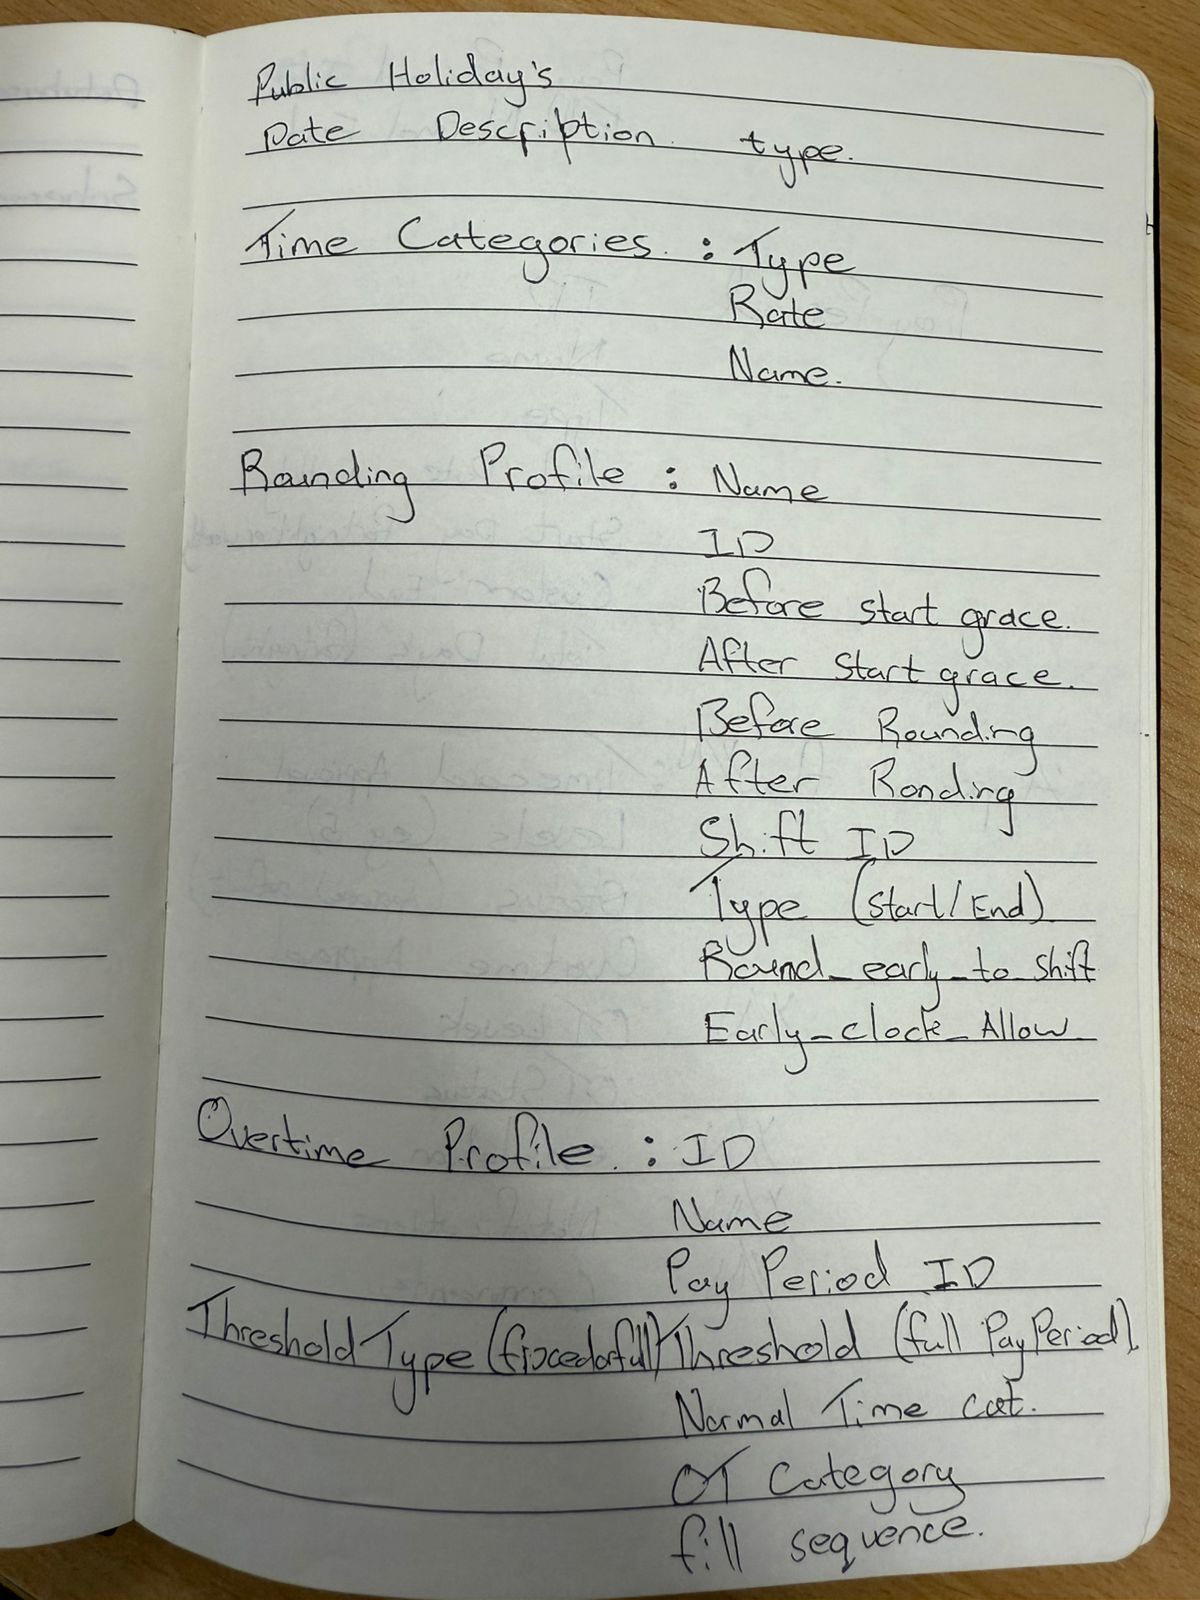 Public Holiday's
Date Description type.
Time Categories. : Type
Rate
Name.
Rounding Profile : Name
ID
Before start grace.
After start grace.
Before Rounding
After Ronding
Shift ID
Type (start/End)
Round_early_to_shift
Early_clock_Allow
Overtime Profile. : ID
Name
Pay Period ID
Threshold Type (fixed or full) Threshold (full Pay Period).
Normal Time cat.
OT Category
fill sequence.